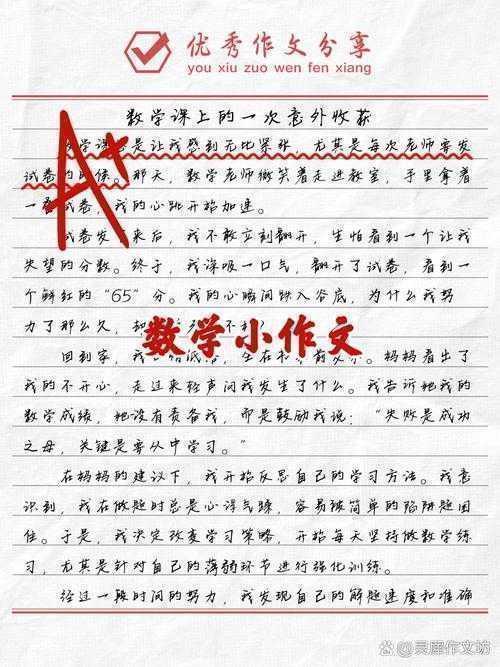 优秀作文分享
you xiu zuo wen fen xiang
数学课上的一次意外收获
A+
学课 是让我感到无比紧张，尤其是每次老师要发
试卷的时候。那天，数学老师微笑着走进教室，手里拿着
一 试卷，我的心跳开始加速。
试卷发 来后，我不敢立刻翻开，生怕看到一个让我
失望的分数。终于，我深吸一口气，翻开了试卷，看到一
个鲜红的“65”分。我的心瞬间跌入谷底，为什么我努
力了那么久，
数学小作文
回到家，我 妈妈看出了
我的不开心，走过来轻声问我发生了什么。我告诉她我的
数学成绩，她没有责备我，而是鼓励我说：“失败是成功
之母，关键是要从中学习。”
在妈妈的建议下，我开始反思自己的学习方法。我意
识到，我在做题时总是心浮气躁，容易被简单的陷阱题困
住。于是，我决定改变学习策略，开始每天坚持做数学练
习，尤其是针对自己的薄弱环节进行强化训练。
经过一段时间的努力，我发现自己的解题速度和准确
@灵犀作文坊